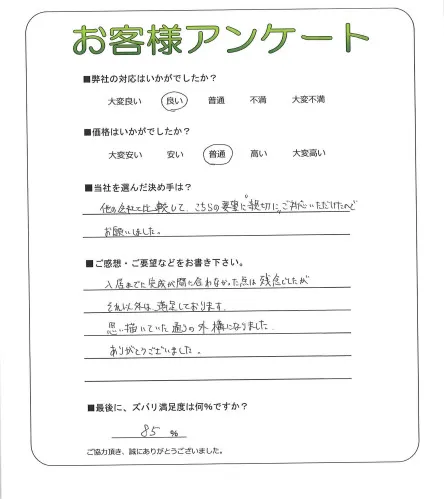 お客様アンケート
■弊社の対応はいかがでしたか?
大変良い 良い 普通 不満 大変不満
■価格はいかがでしたか?
大変安い 安い 普通 高い 大変高い
■当社を選んだ決め手は?
他の会社と比較して、こちらの要望に親切にご対応いただけたので
お願いしました。
■ご感想・ご要望などをお書き下さい。
入居までに完成が間に合わなかった点は残念でしたが
それ以外は満足しております。
思い描いていた通りの外構になりました。
ありがとうございました。
■最後に、ズバリ満足度は何%ですか?
85 %
ご協力頂き、誠にありがとうございました。